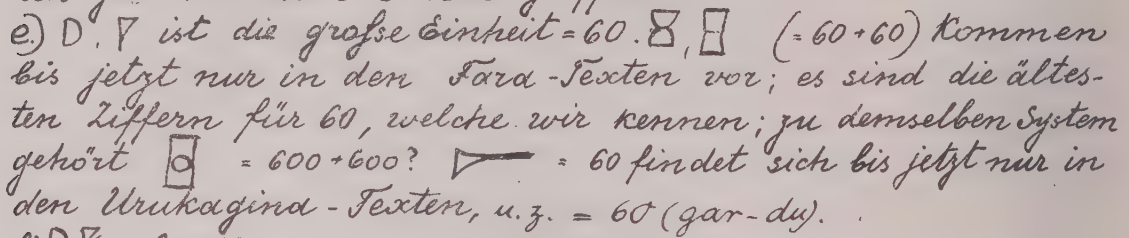 e.) D, 𒁹 ist die große Einheit = 60. (= 60 + 60) Kommen
bis jetzt nur in den Fara-Texten vor; es sind die ältes-
ten Ziffern für 60, welche wir kennen; zu demselben System
gehört = 600 + 600? = 60 findet sich bis jetzt nur in
den Urukagina-Texten, u. z. = 60 (gar-du).